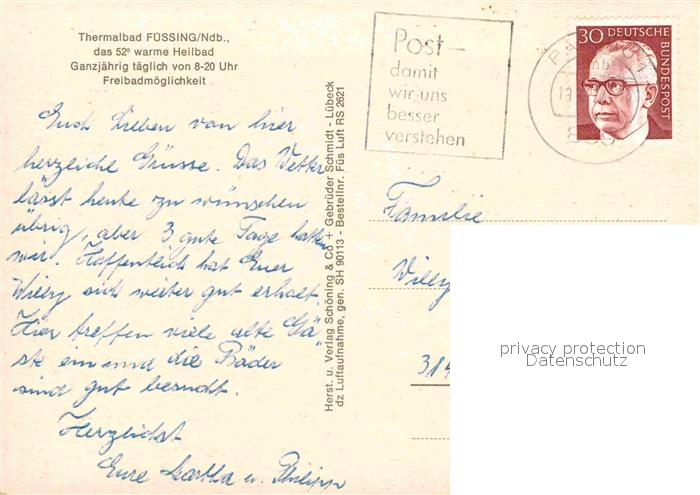 Thermalbad FÜSSING/Ndb.,
das 52º warme Heilbad
Ganzjährig täglich von 8-20 Uhr
Freibadmöglichkeit
Euch Lieben von hier
herzliche Grüsse. Das Wetter
lässt heute zu wünschen
übrig, aber 3 gute Tage hatten
wir. Hoffentlich hat Euer
Willy sich weiter gut erholt.
Hier treffen viele alte Gä
ste ein und die Bäder
sind gut besucht.
Herzlichst
Eure Martha u. Philipp
Herst. u. Verlag Schöning & Co + Gebrüder Schmidt - Lübeck
dz Luftaufnahme, gen. SH 90113 - Bestellnr. Füs Luft RS 2621
Post-
damit
wir uns
besser
verstehen
30 DEUTSCHE
BUNDESPOST
Familie
Willy
314
privacy protection
Datenschutz